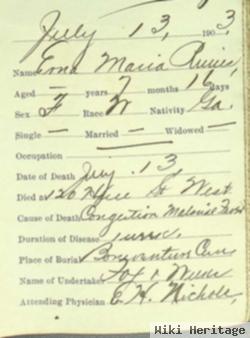 July 13, 1903
Name Edna Maria
Aged — years 7 months 16 days
Sex F Race W Nativity Ga.
Single — Married — Widowed —
Occupation
Date of Death July 13
Died at St West
Cause of Death Congestion
Duration of Disease 1 week
Place of Burial Bonaventure Cem
Name of Undertaker Fox &
Attending Physician E. H. Nichols
Wiki Heritage